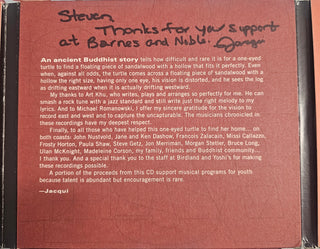 Steven
Thanks for your support
at Barnes and Noble. Jacqui
An ancient Buddhist story tells how difficult and rare it is for a one-eyed
turtle to find a floating piece of sandalwood with a hollow that fits it perfectly. Even
when, against all odds, the turtle comes across a floating piece of sandalwood with
a hollow the right size, having only one eye, his vision is distorted, and he sees the log
as drifting eastward when it is actually drifting westward.
My thanks to Art Khu, who writes, plays and arranges so perfectly for me. He can
smash a rock tune with a jazz standard and still write just the right melody to my
lyrics. And to Michael Romanowski, I offer my sincere gratitude for the vision to
record east and west and to capture the uncapturable. The musicians chronicled in
these recordings have my deepest respect.
Finally, to all those who have helped this one-eyed turtle to find her home... on
both coasts: John Nushold, Jane and Ken Dashow, Francois Zalacain, Missi Callazzo,
Frosty Horton, Paula Shaw, Steve Getz, Jon Merriman, Morgan Stetler, Bruce Long,
Ulan McKnight, Madeleine Corson, my family, friends and Buddhist community...
I thank you. And a special thank you to the staff at Birdland and Yoshi's for making
these recordings possible.
A portion of the proceeds from this CD support musical programs for youth
because talent is abundant but encouragement is rare.
—Jacqui